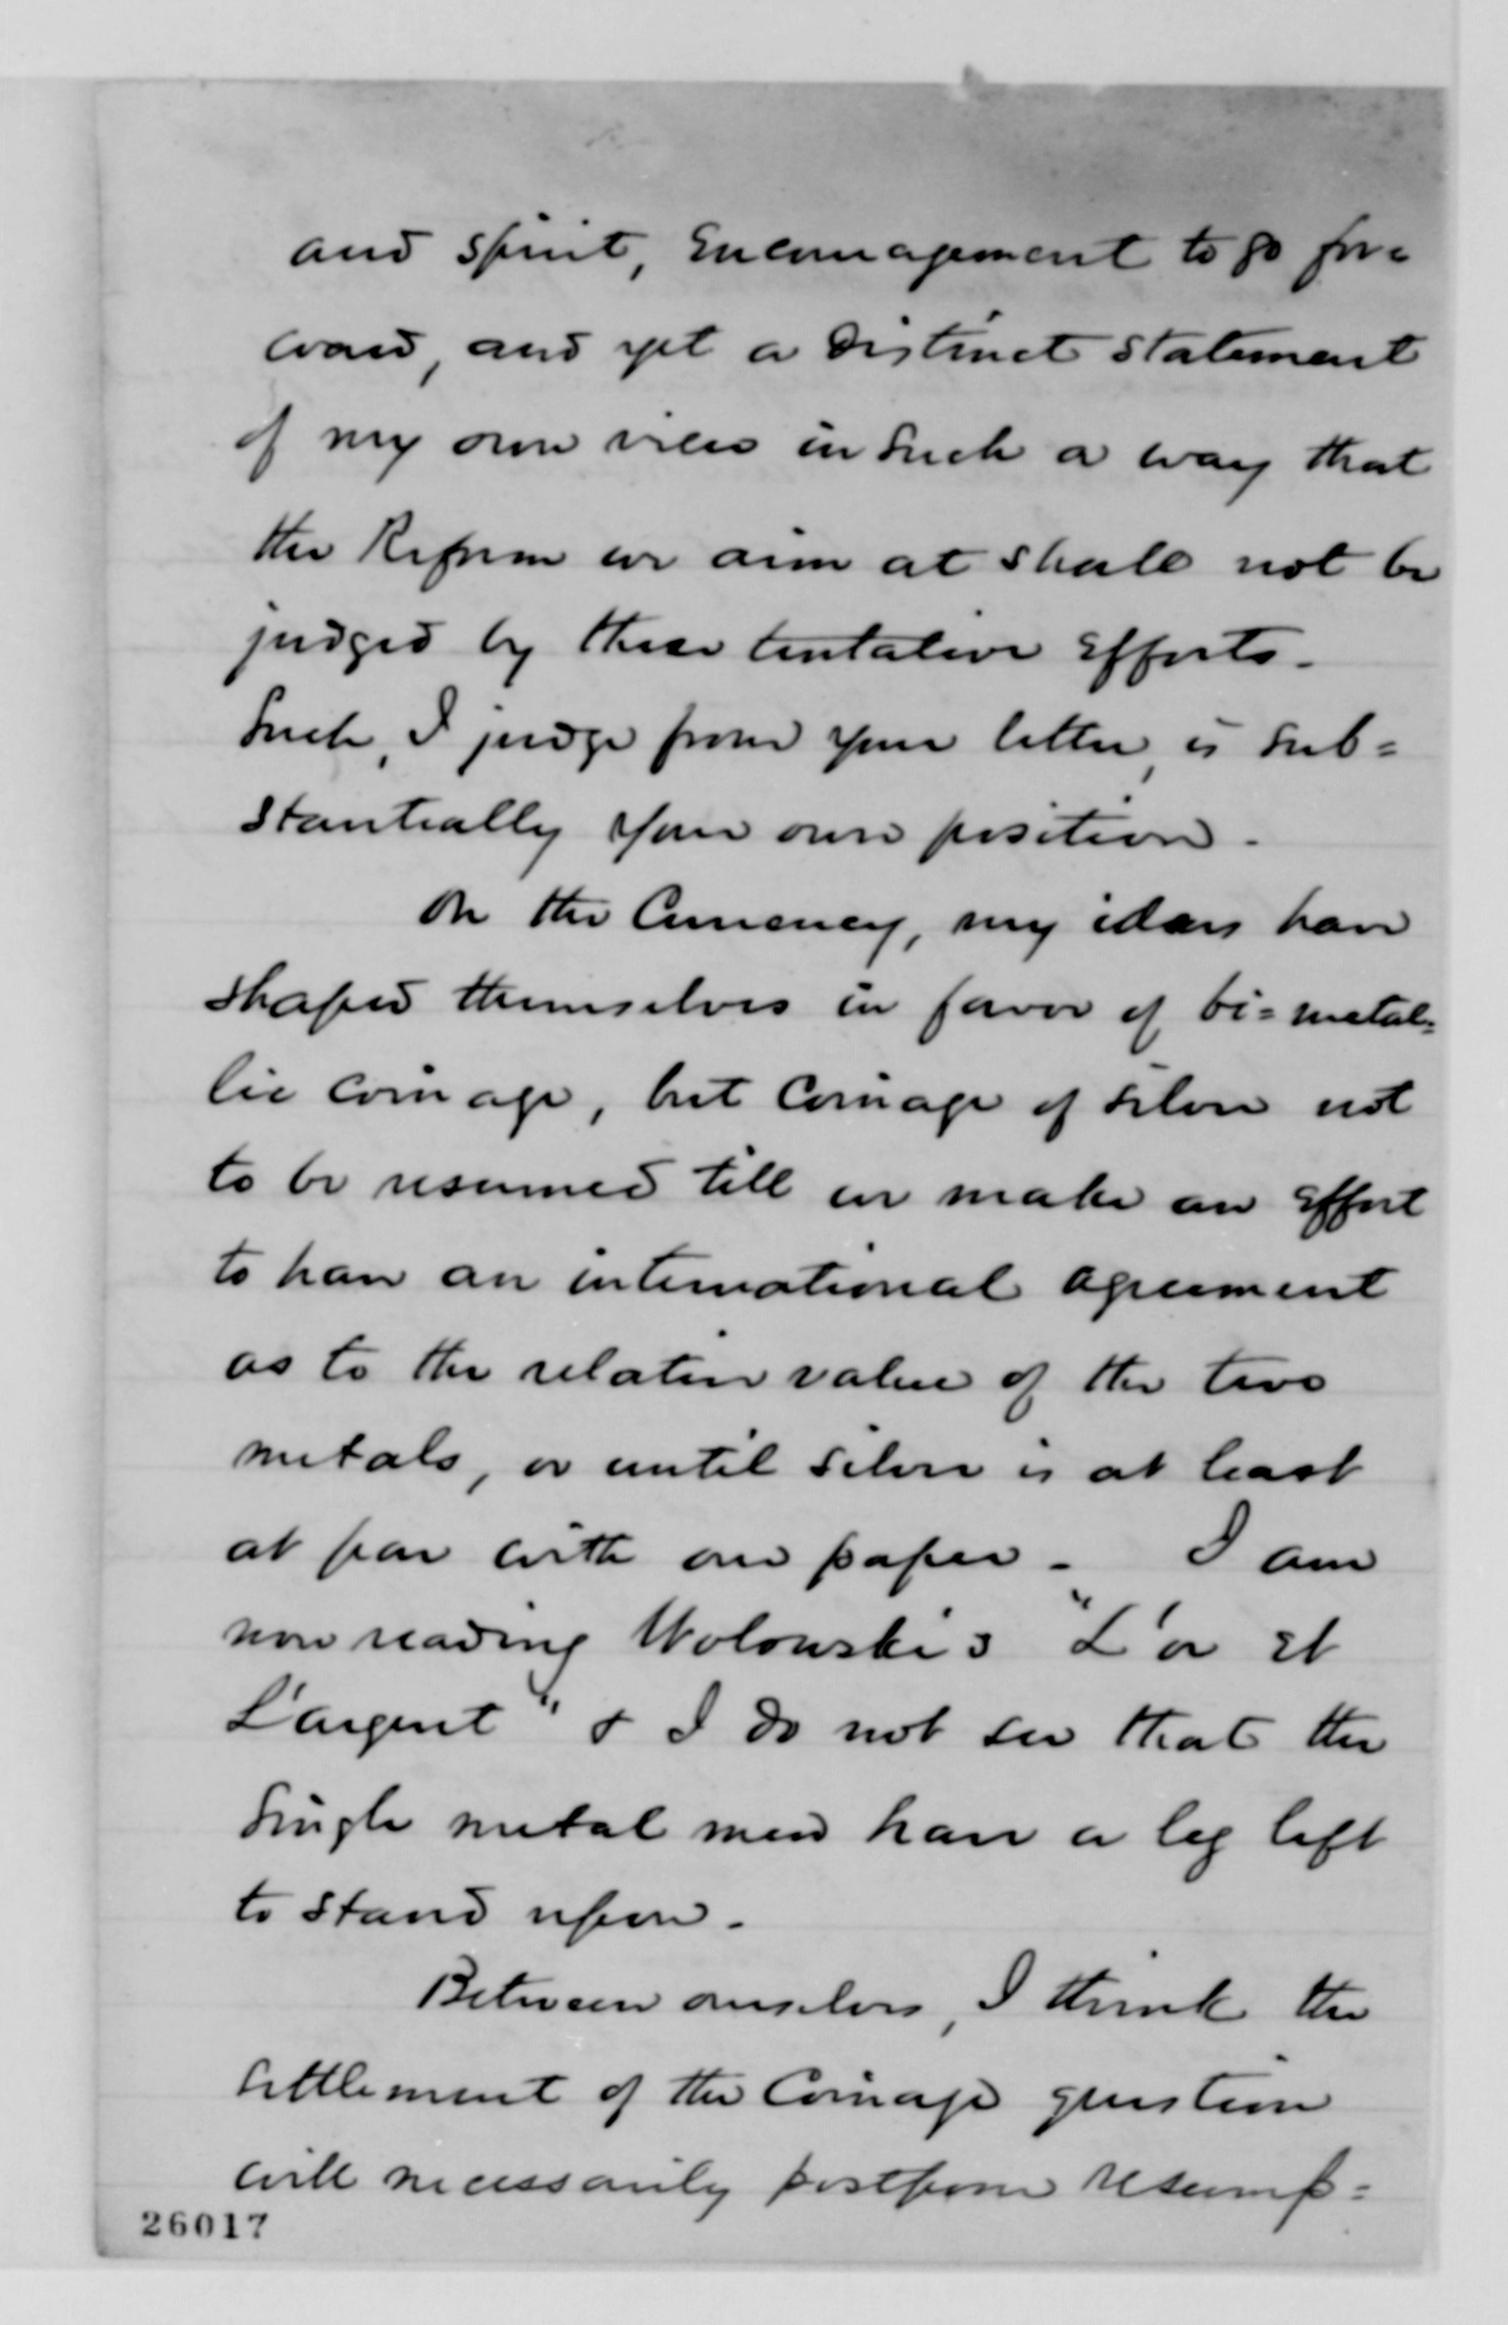 and spirit, encouragement to go for=
ward, and yet a distinct statement
of my own views in such a way that
the Reform we aim at shall not be
judged by these tentative efforts.
Such, I judge from your letter, is sub=
stantially your own position.
On the Currency, my ideas have
shaped themselves in favor of bi=metal=
lic coinage, but coinage of silver not
to be resumed till we make an effort
to have an international agreement
as to the relative value of the two
metals, or until silver is at least
at par with our paper. I am
now reading Wolowski's "L'or et
L'argent" & I do not see that the
single metal men have a leg left
to stand upon.
Between ourselves, I think the
settlement of the Coinage question
will necessarily postpone resump=
26017